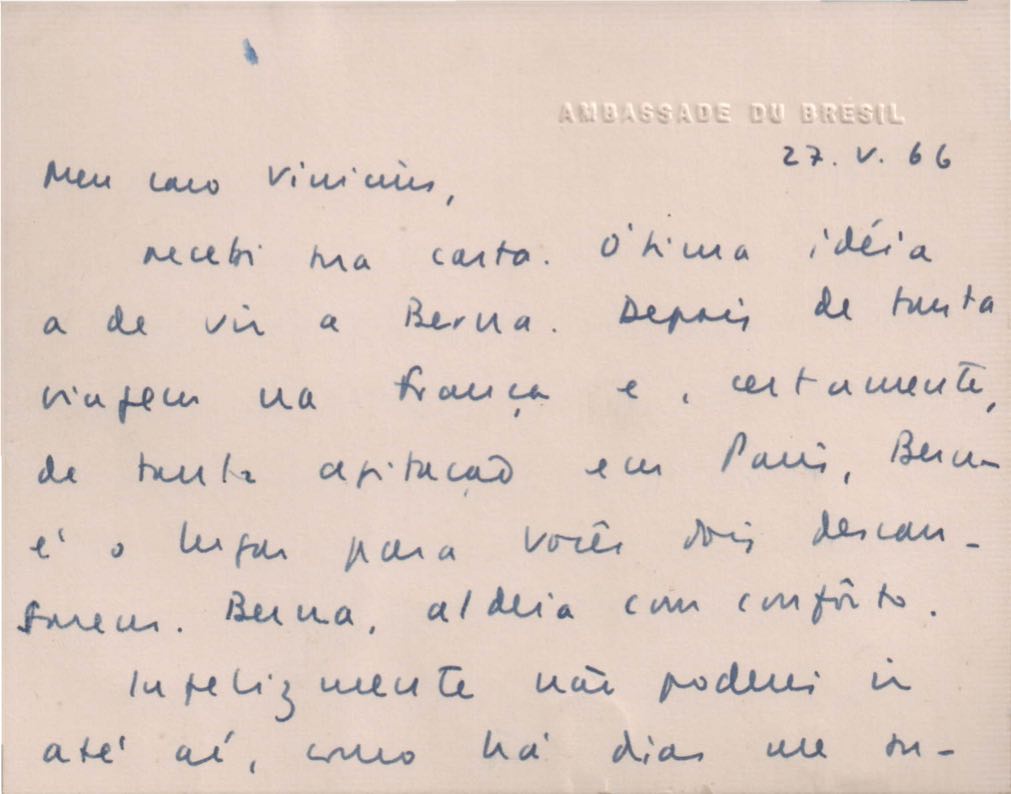 AMBASSADE DU BRÉSIL
27. V. 66
Meu caro Vinicius,
recebi tua carta. Ótima idéia
a de vir a Berna. Depois de tanta
viagem na França e, certamente,
de tanta agitação em Paris, Berna
é o lugar para vocês dois descan-
sarem. Berna, aldeia com confôrto.
Infelizmente não poderei ir
até aí, como há dias me su-